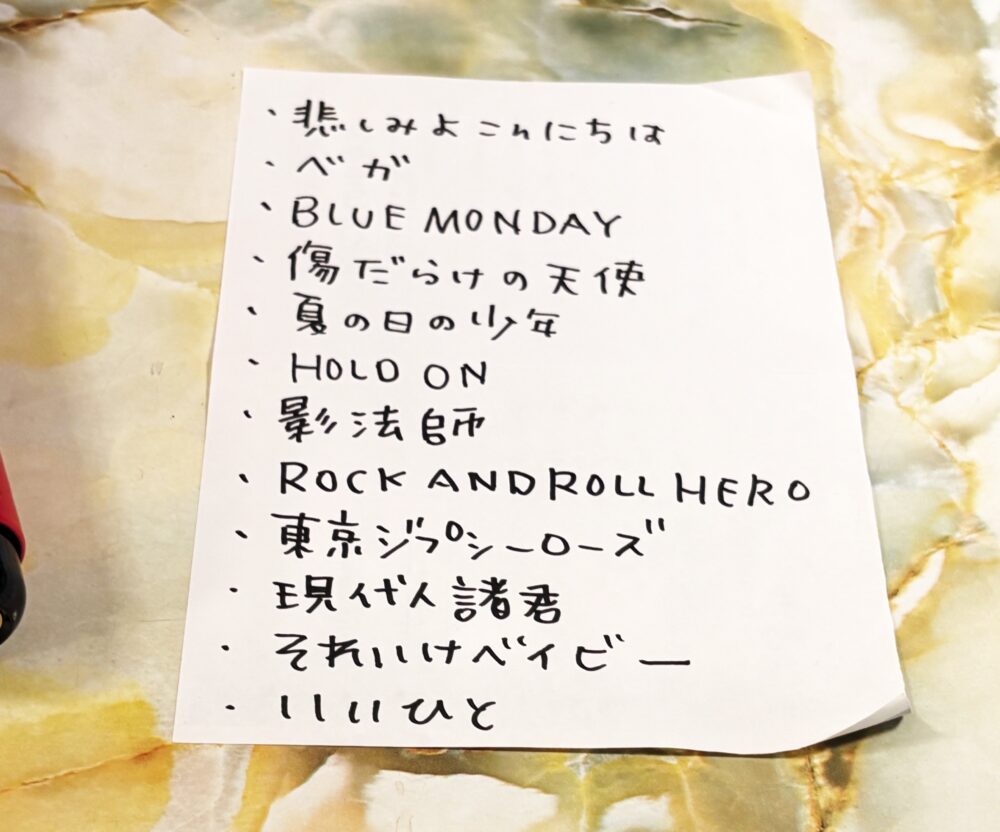 ・悲しみよこんにちは
・ベガ
・BLUE MONDAY
・傷だらけの天使
・夏の日の少年
・HOLD ON
・影法師
・ROCK AND ROLL HERO
・東京ジプシーローズ
・現代人諸君
・それいけベイビー
・いいひと